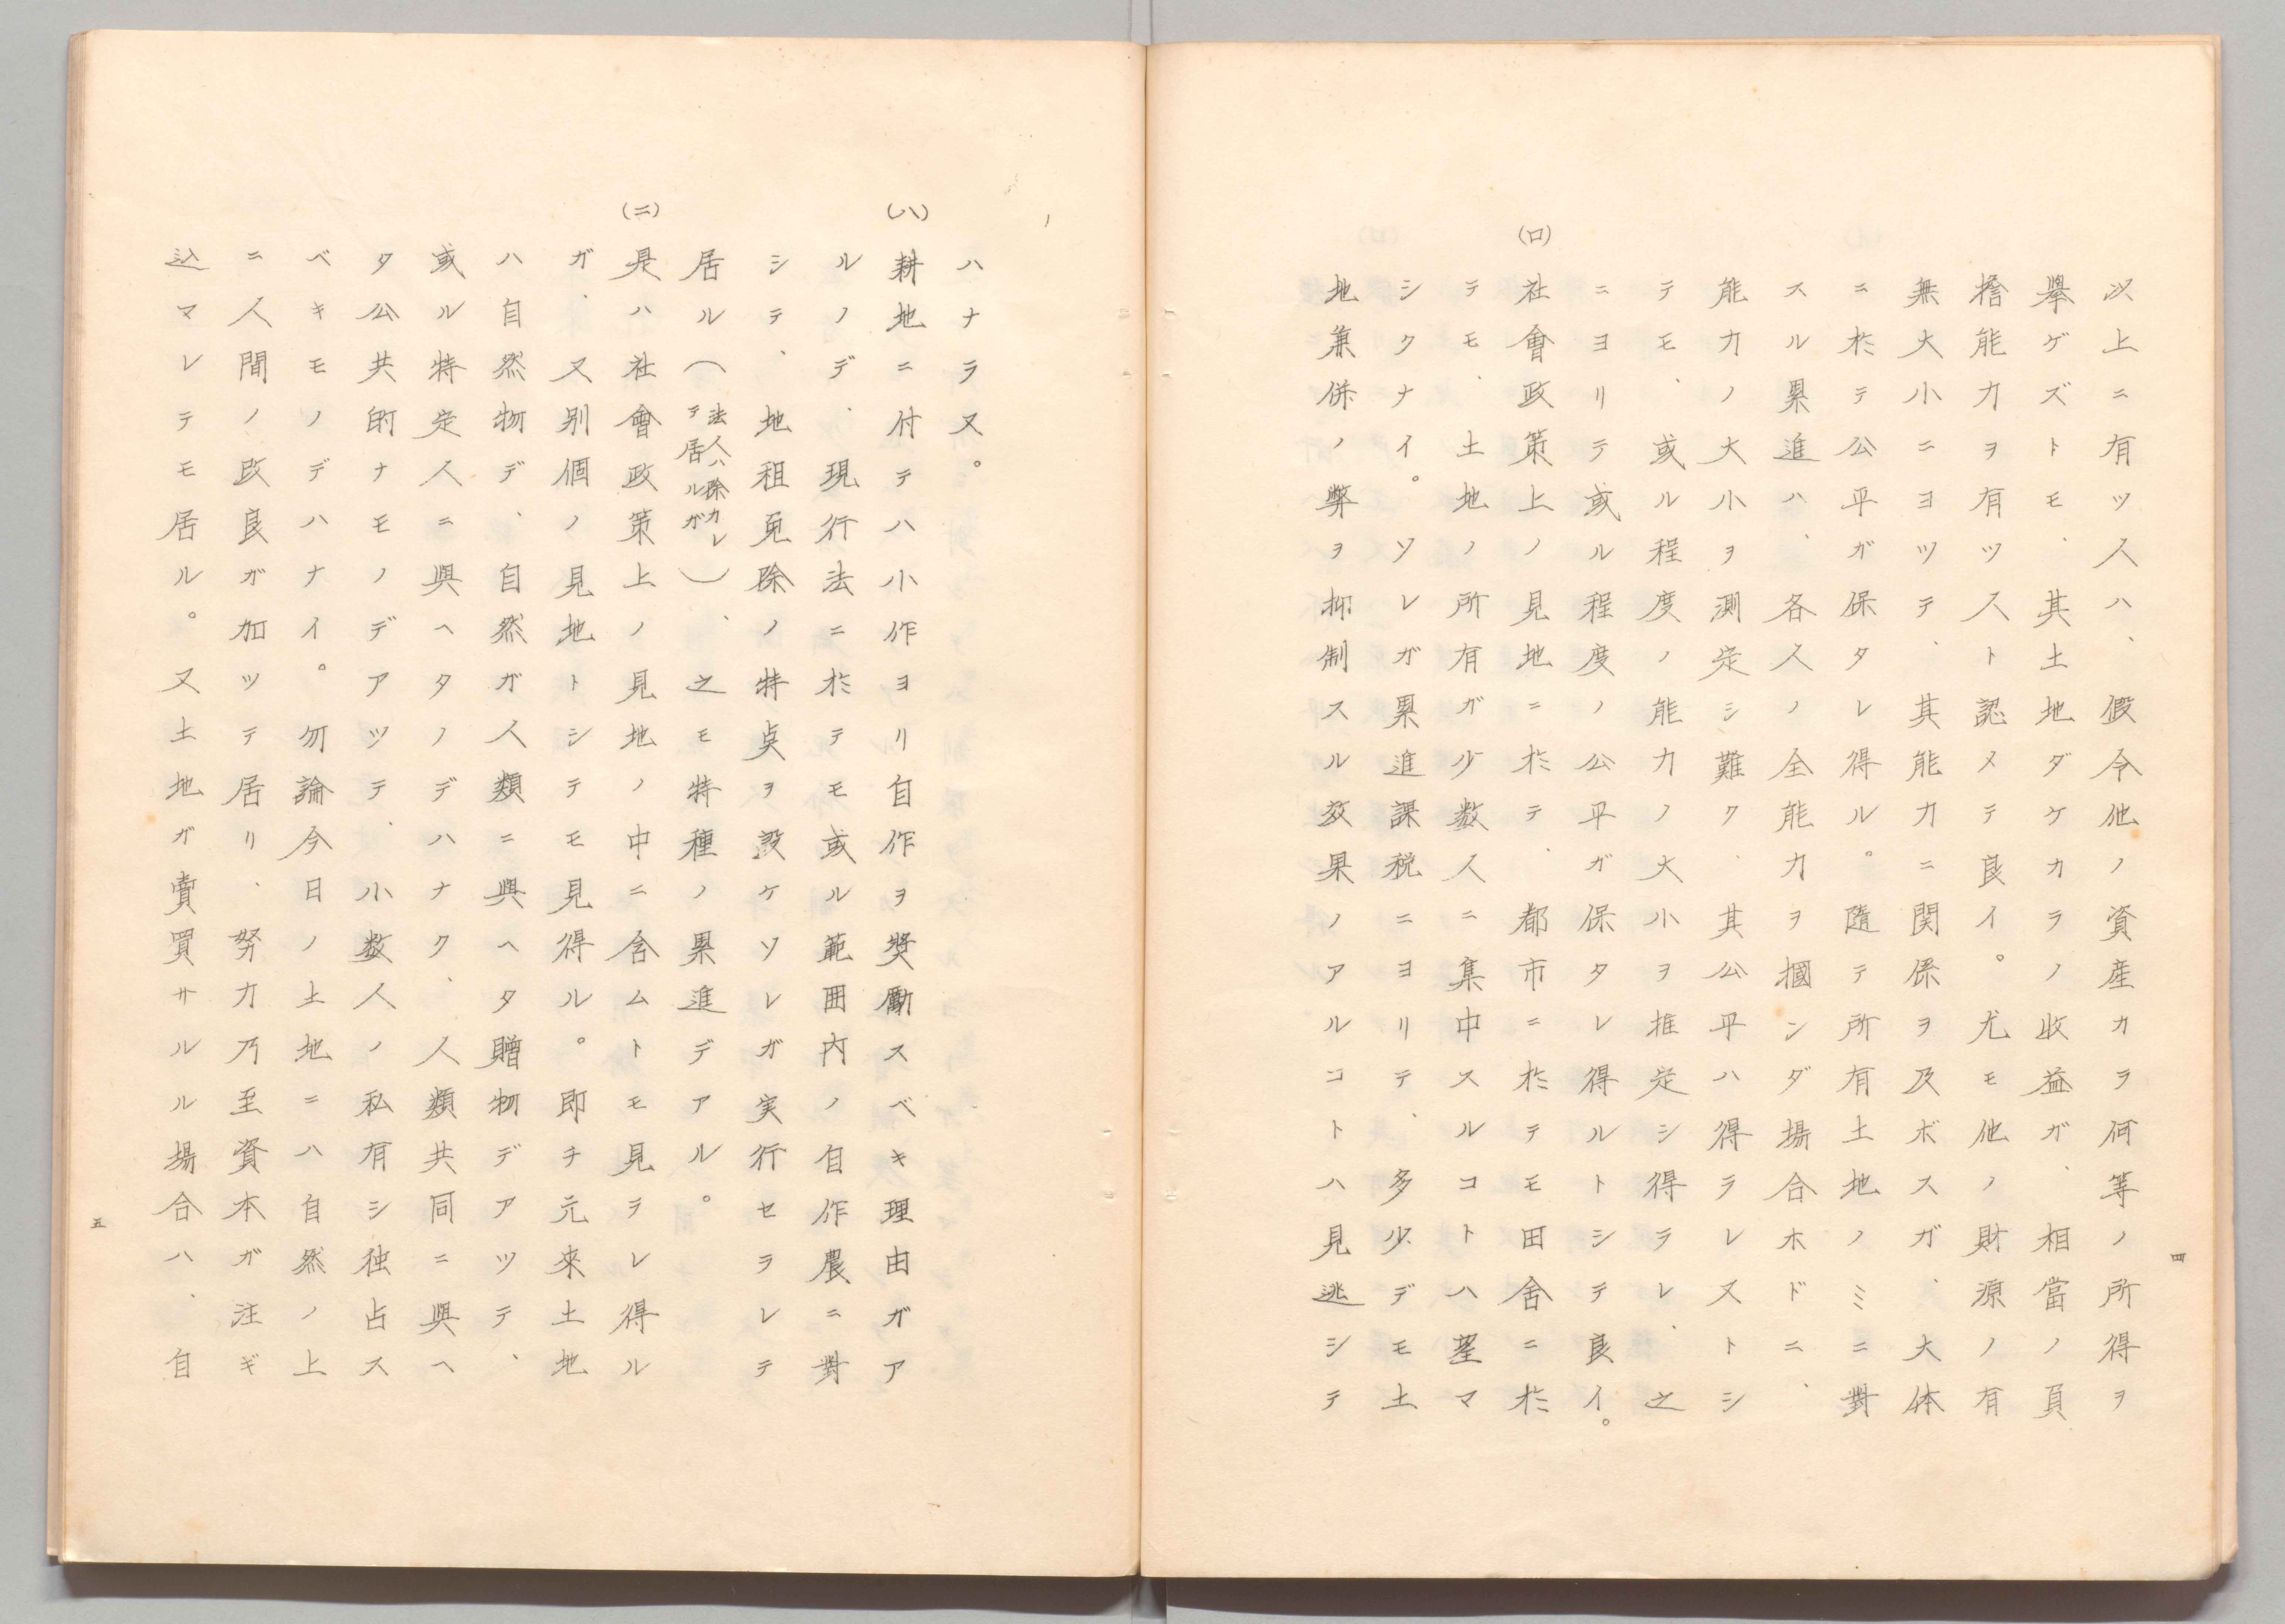 以上ニ有ツ人ハ、假令他ノ資産カラ何等ノ所得ヲ
擧ゲズトモ、其土地ダケカラノ收益ガ、相當ノ負
擔能力ヲ有ツ人ト認メテ良イ。尤モ他ノ財源ノ有
無大小ニヨツテ、其能力ニ関係ヲ及ボスガ、大体
ニ於テ公平ガ保タレ得ル。隨テ所有土地ノミニ對
スル累進ハ、各人ノ全能力ヲ摑ンダ場合ホドニ、
能力ノ大小ヲ測定シ難ク、其公平ハ得ラレヌトシ
テモ、或ル程度ノ能力ノ大小ヲ推定シ得ラレ、之
ニヨリテ或ル程度ノ公平ガ保タレ得ルトシテ良イ。
(ロ)社會政策上ノ見地ニ於テ、都市ニ於テモ田舍ニ於
テモ、土地ノ所有ガ少数人ニ集中スルコトハ望マ
シクナイ。ソレガ累進課税ニヨリテ、多少デモ土
地兼併ノ弊ヲ抑制スル效果ノアルコトハ見逃シテ
四
ハナラヌ。
(ハ)耕地ニ付テハ小作ヨリ自作ヲ奬勵スベキ理由ガア
ルノデ、現行法ニ於テモ或ル範囲内ノ自作農ニ對
シテ、地租免除ノ特奌ヲ設ケソレガ実行セラレテ
居ル(法人ハ除カレテ居ルガ)、之モ特種ノ累進デアル。
(ニ)是ハ社會政策上ノ見地ノ中ニ含ムトモ見ラレ得ル
ガ、又別個ノ見地トシテモ見得ル。即チ元來土地
ハ自然物デ、自然ガ人類ニ與ヘタ贈物デアツテ、
或ル特定人ニ與ヘタノデハナク、人類共同ニ與ヘ
タ公共的ナモノデアツテ、小数人ノ私有シ独占ス
ベキモノデハナイ。勿論今日ノ土地ニハ自然ノ上
ニ人間ノ改良ガ加ツテ居リ、努力乃至資本ガ注ギ
込マレテモ居ル。又土地ガ賣買サルル場合ハ、自
五